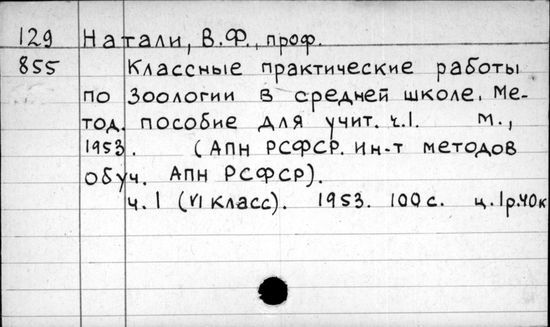 129 Натали, В.Ф., проф.
855 Классные практические работы
по Зоологии в средней школе. Ме-
тод. пособие для учит. ч.1. М.,
1953. (АПН РСФСР. Ин-т методов
обуч. АПН РСФСР).
ч.1 (VI класс). 1953. 100 с. ц. 1р.40к